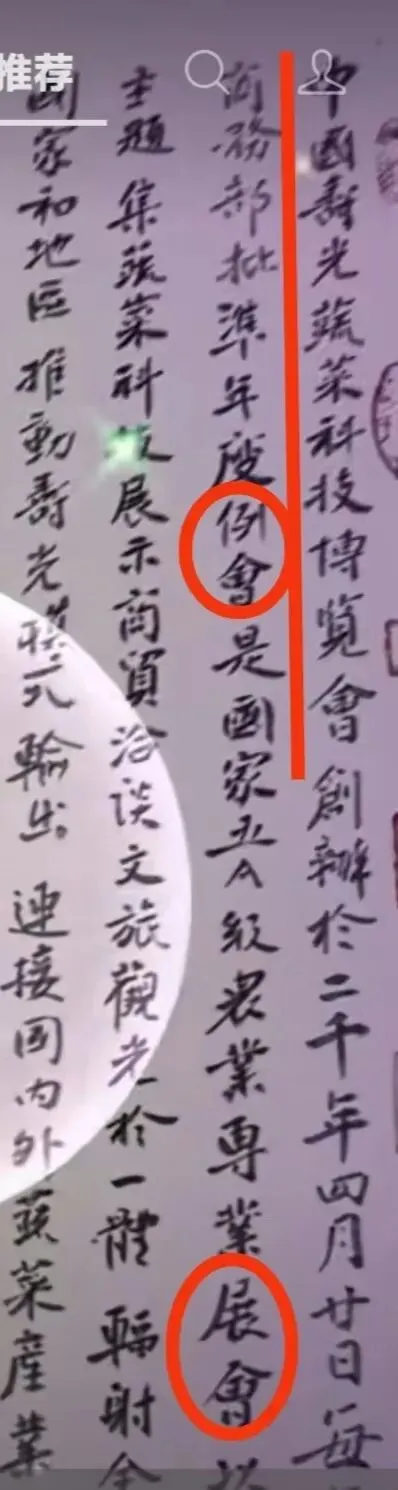 推荐
中國壽光蔬菜科技博覽會創辦於二千年四月廿日每
商務部批準年度例會是國家五A級農業專業展會以
主題集蔬菜科技展示商貿洽談文旅觀光於一體輻射全
國家和地區推動壽光模式輸出連接国内外蔬菜産業